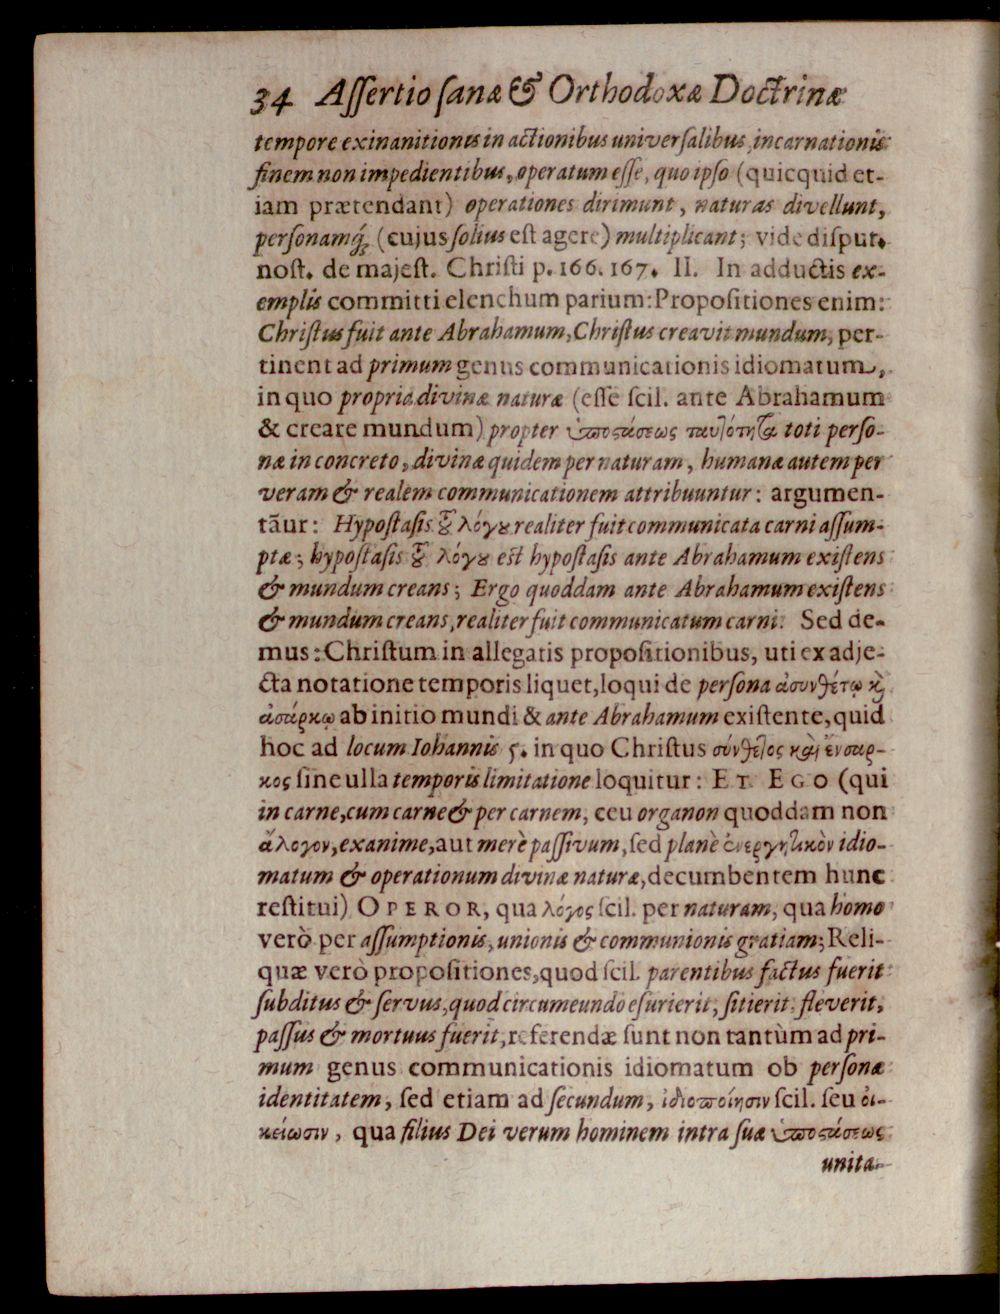 34 Aſſertio ſanæ & Orthodoxæ Doctrinæ
tempore exinanitionis in actionibus univerſalibus, incarnationis
finem non impedientibus, operatum eſſe, quo ipſo (quicquid et-
iam prætendant) operationes dirimunt, naturas divellunt,
perſonamq́; (cujus ſolius eſt agere) multiplicant; vide diſput.
noſt. de majeſt. Chriſti p. 166. 167. II. In adductis ex-
emplis committi elenchum parium: Propoſitiones enim:
Chriſtus fuit ante Abrahamum, Chriſtus creavit mundum, per-
tinent ad primum genus communicationis idiomatum,
in quo propria divinæ naturæ (eſſe ſcil. ante Abrahamum
& creare mundum) propter ὑποστάσεως ταυτότητα toti perſo-
næ in concreto, divinæ quidem per naturam, humanæ autem per
veram & realem communicationem attribuuntur: argumen-
tãur: Hypoſtaſis τȣ͂ λόγȣ realiter fuit communicata carni aſſum-
ptæ; hypoſtaſis τȣ͂ λόγȣ eſt hypoſtaſis ante Abrahamum exiſtens
& mundum creans; Ergo quoddam ante Abrahamum exiſtens
& mundum creans, realiter fuit communicatum carni. Sed de-
mus: Chriſtum in allegatis propoſitionibus, uti ex adje-
cta notatione temporis liquet, loqui de perſona ἀσυνθέτῳ κ̀
ἀσάρκῳ ab initio mundi & ante Abrahamum exiſtente, quid
hoc ad locum Iohannis 5. in quo Chriſtus σύνθετος καὶ ἔνσαρ-
κος ſine ulla temporis limitatione loquitur: ET EGO (qui
in carne, cum carne & per carnem, ceu organon quoddam non
ἄλογον, exanime, aut merè paſſivum, ſed planè ἐνεργητικὸν idio-
matum & operationum divinæ naturæ, decumbentem hunc
reſtitui) OPEROR, qua λόγος ſcil. per naturam, qua homo
verò per aſſumptionis, unionis & communionis gratiam; Reli-
quæ verò propoſitiones, quod ſcil. parentibus factus fuerit
ſubditus & ſervus, quod circumeundo eſurierit, ſitierit, fleverit,
paſſus & mortuus fuerit, referendæ ſunt non tantùm ad pri-
mum genus communicationis idiomatum ob perſonæ
identitatem, ſed etiam ad ſecundum, ἰδιοποίησιν ſcil. ſeu οἰ-
κείωσιν, qua filius Dei verum hominem intra ſuæ ὑποστάσεως
unita-